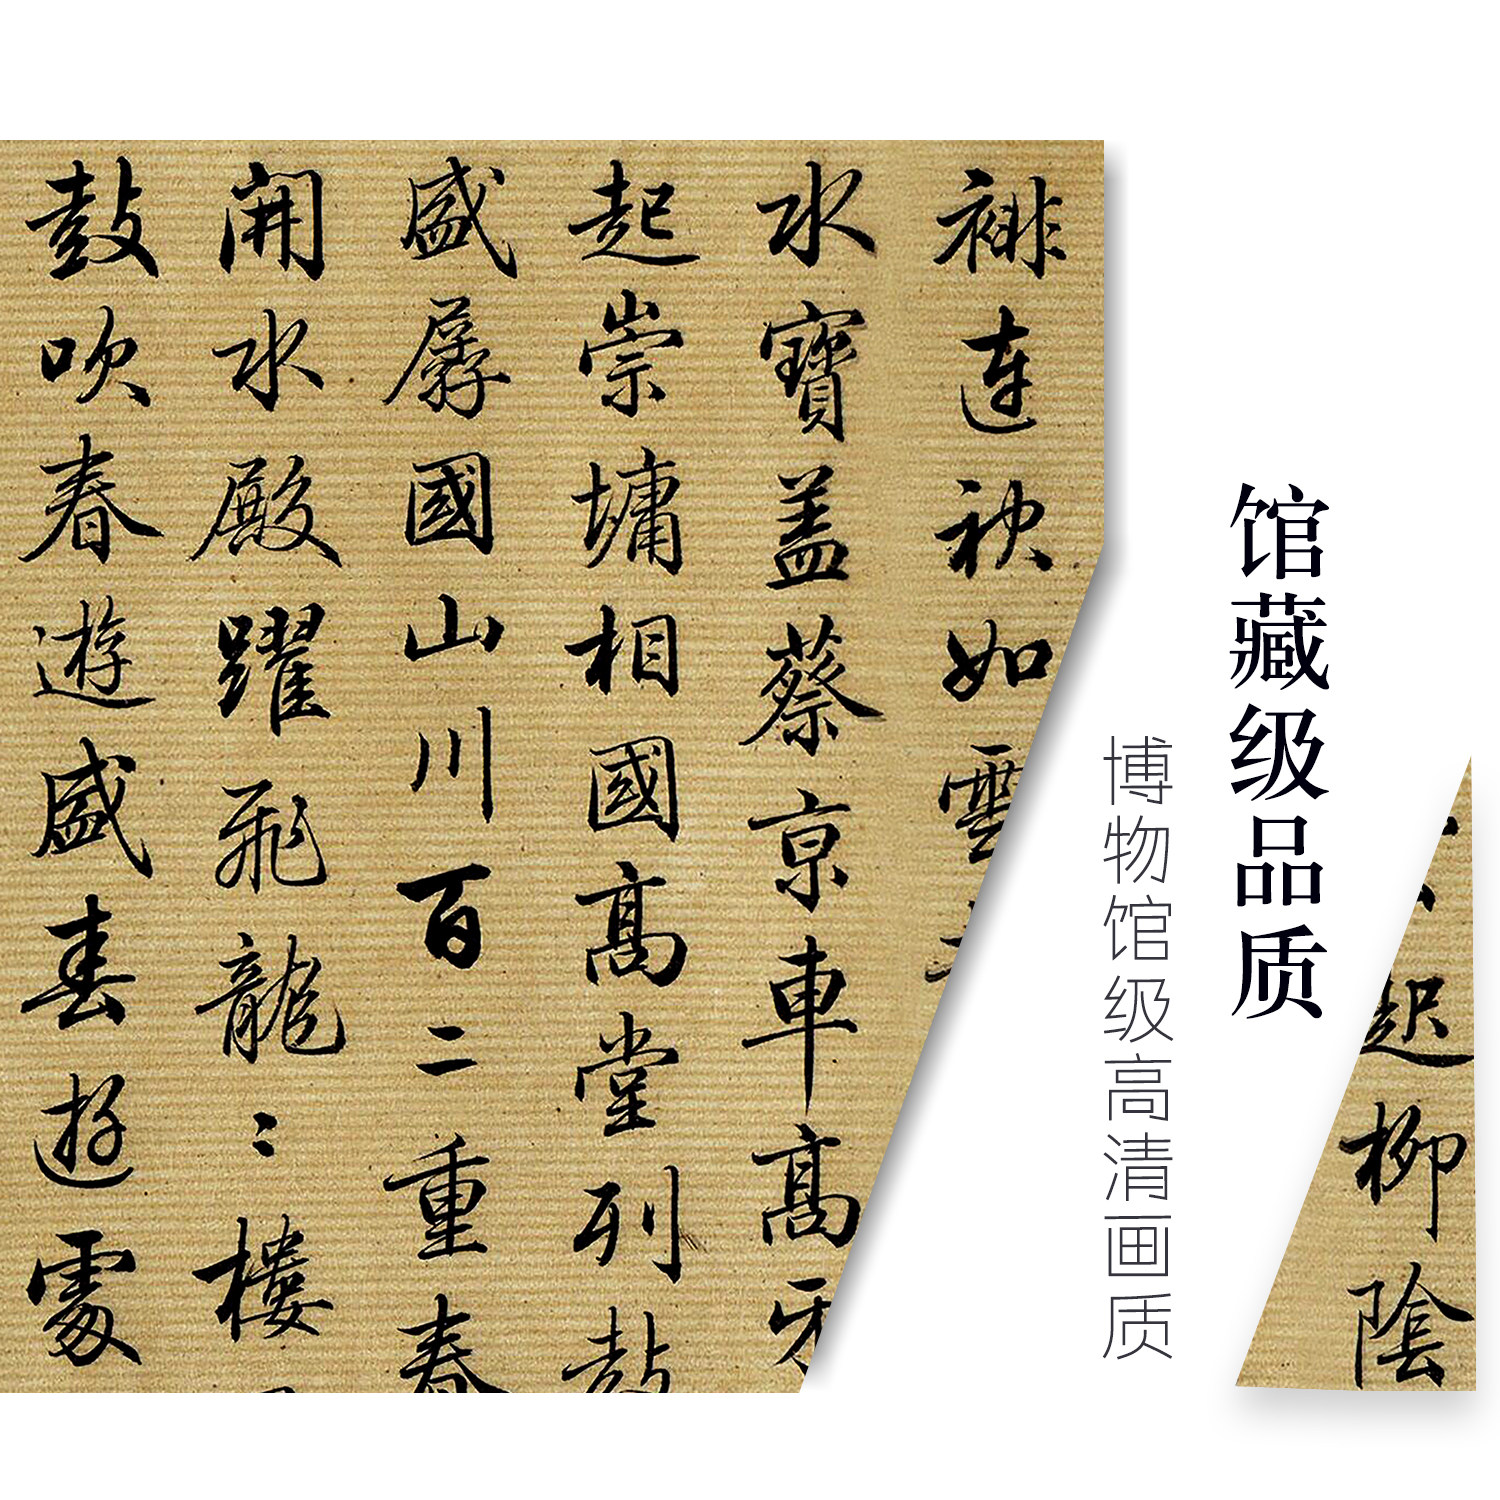 馆藏级品质
博物馆级高清画质
柳陰
裶連袂如雲
水寶蓋蔡京車高牙
起崇墉相國高堂列鼓
盛孱國山川百二重春
開水殿躍飛龍〻樓
鼓吹春遊盛春遊處